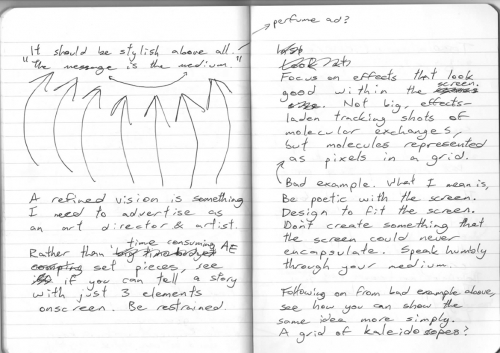 It should be stylish above all.
"The message is the medium."
A refined vision is something
I need to advertise as
an art director & artist.
time consuming AE
Rather than
set pieces, see
if you can tell a story
with just 3 elements
onscreen. Be restrained.
perfume ad?
Focus on effects that look
screen.
good within the
Not big, effects-
laden tracking shots of
molecular exchanges,
but molecules represented
as pixels in a grid.
Bad example. What I mean is,
Be poetic with the screen.
Design to fit the screen.
Don't create something that
the screen could never
encapsulate. Speak humbly
through your medium.
Following on from bad example above,
see how you can show the
same idea more simply.
A grid of kaleidoscopes?